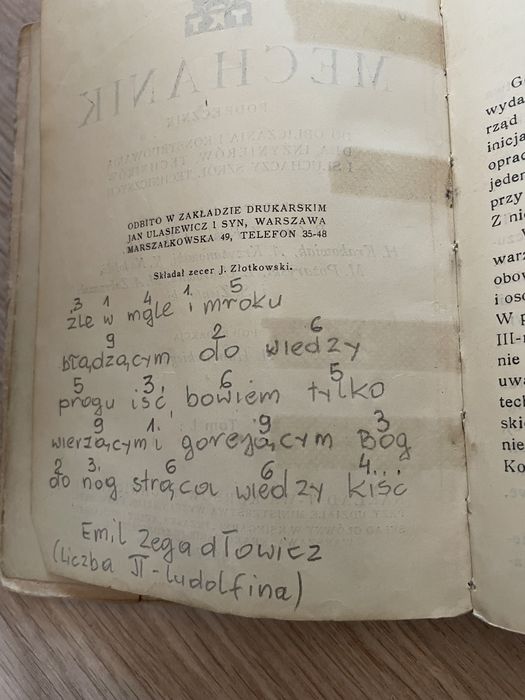 TKT
MECHANIK
PODRĘCZNIK
DO OBLICZANIA I KONSTRUOWANIA
DLA INŻYNIERÓW, TECHNIKÓW
I SŁUCHACZY SZKÓŁ TECHNICZNYCH
ODBITO W ZAKŁADZIE DRUKARSKIM
JAN ULASIEWICZ I SYN, WARSZAWA
MARSZAŁKOWSKA 49, TELEFON 35-48
Składał zecer J. Złotkowski.
3 1 4 1 5
źle w mgle i mroku
9 2 6
błądzącym do wiedzy
5 3 6 5
progu iść, bowiem tylko
9 1. 9 3
wierzącym i gorejącym Bóg
2 3. 6 6 4...
do nóg strąca wiedzy kiść
Emil Zegadłowicz
(Liczba π - ludolfina)
wyda
rząd
inicja
oprac
jeden
przy
Z nie
warz
obow
i oso
W p
III-r
nie
uwa
tech
skie
nie
Ko